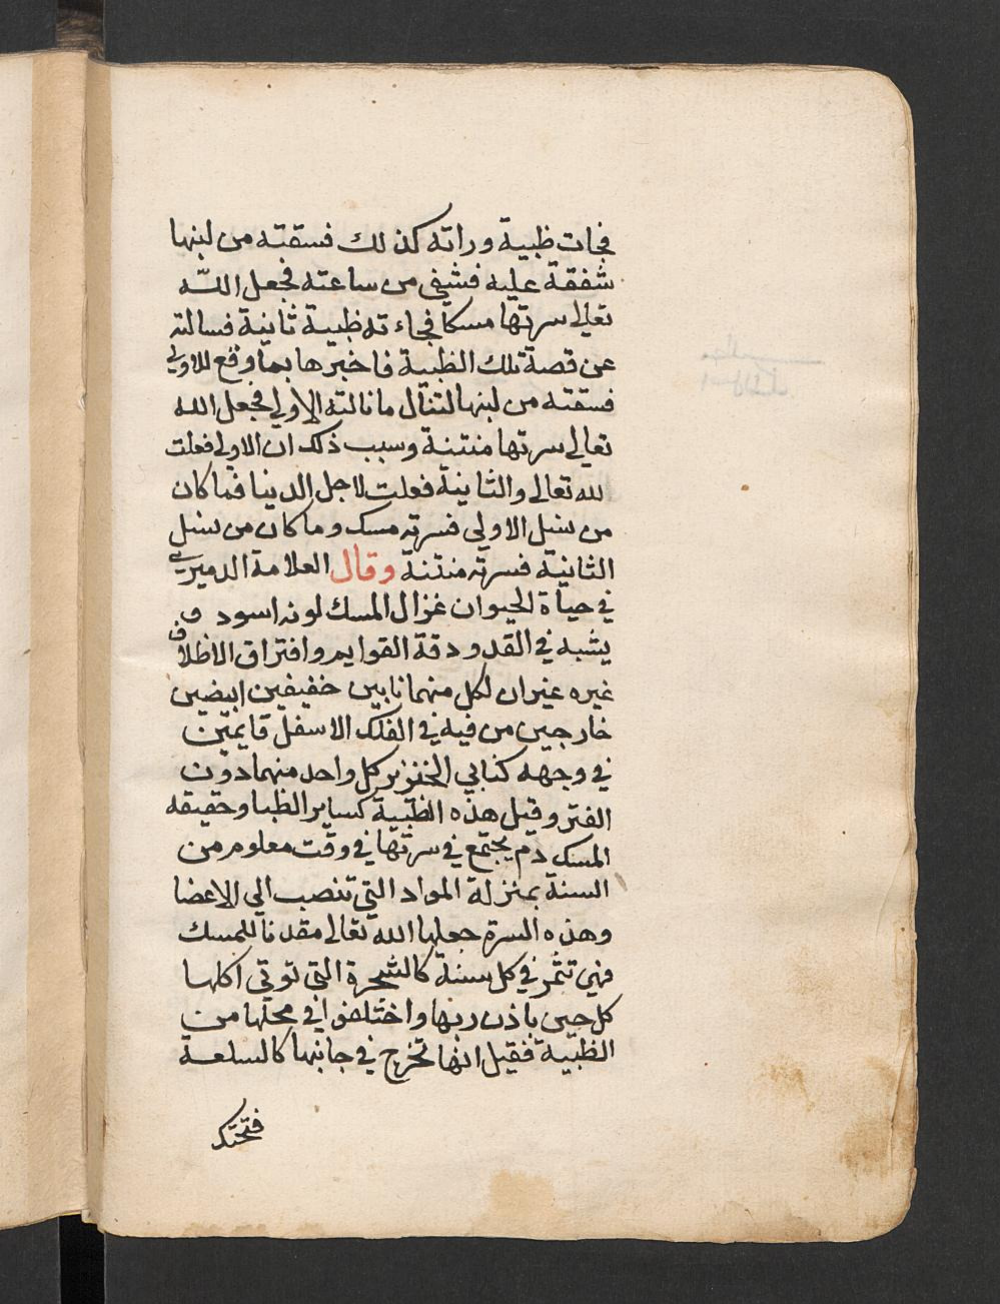 فجات ظبية وراته كذلك فسقته من لبنها
شفقة عليه فشفي من ساعته فجعل الله
تعالى سرتها مسكا فجاء ته ظبية ثانية فسالته
عن قصة تلك الظبية فاخبرها بما وقع للاولي
فسقته من لبنها لتنال ما نالته الاولي فجعل الله
تعالى سرتها منتنة وسبب ذلك ان الاولي فعلت
لله تعالى والثانية فعلت لاجل الدنيا فما كان
من نسل الاولي فسرته مسك وما كان من نسل
الثانية فسرته منتنة وقال العلامة الدميري
في حياة الحيوان غزال المسك لونه اسود و
يشبه في القد ودقة القوايم وافتراق الاظلاف
غيره غيران لكل منهما نابين خفيفين ابيضين
خارجين من فيه في الفك الاسفل قايمين
في وجهه كنابي الخنزير كل واحد منهما دون
الفتر وقيل هذه الظبية كساير الظبا وحقيقه
المسك دم يجتمع في سرتها في وقت معلوم من
السنة بمنزلة المواد التي تنصب الي الاعضا
وهذه السرة جعلها الله تعالى مقدنا للمسك
فهي تثمر في كل سنة كالشجرة التي توتي اكلها
كل حين باذن ربها واختلفوا في محلها من
الظبية فقيل انها تخرج في جانبها كالسلعة
فتحتك